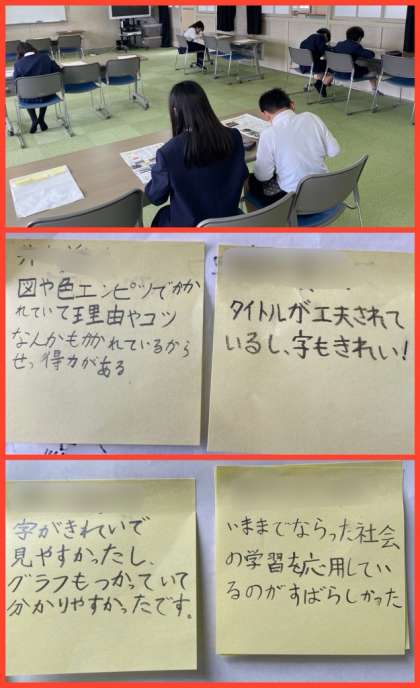 図や色エンピツでかか
れていて理由やコツ
なんかもかかれているから
せっ得力がある
タイトルが工夫されて
いるし、字もきれい!
字がきれいで
見やすかったし、
グラフもつかっていて
分かりやすかったです。
いままでならった社会
の学習を応用してい
るのがすばらしかった